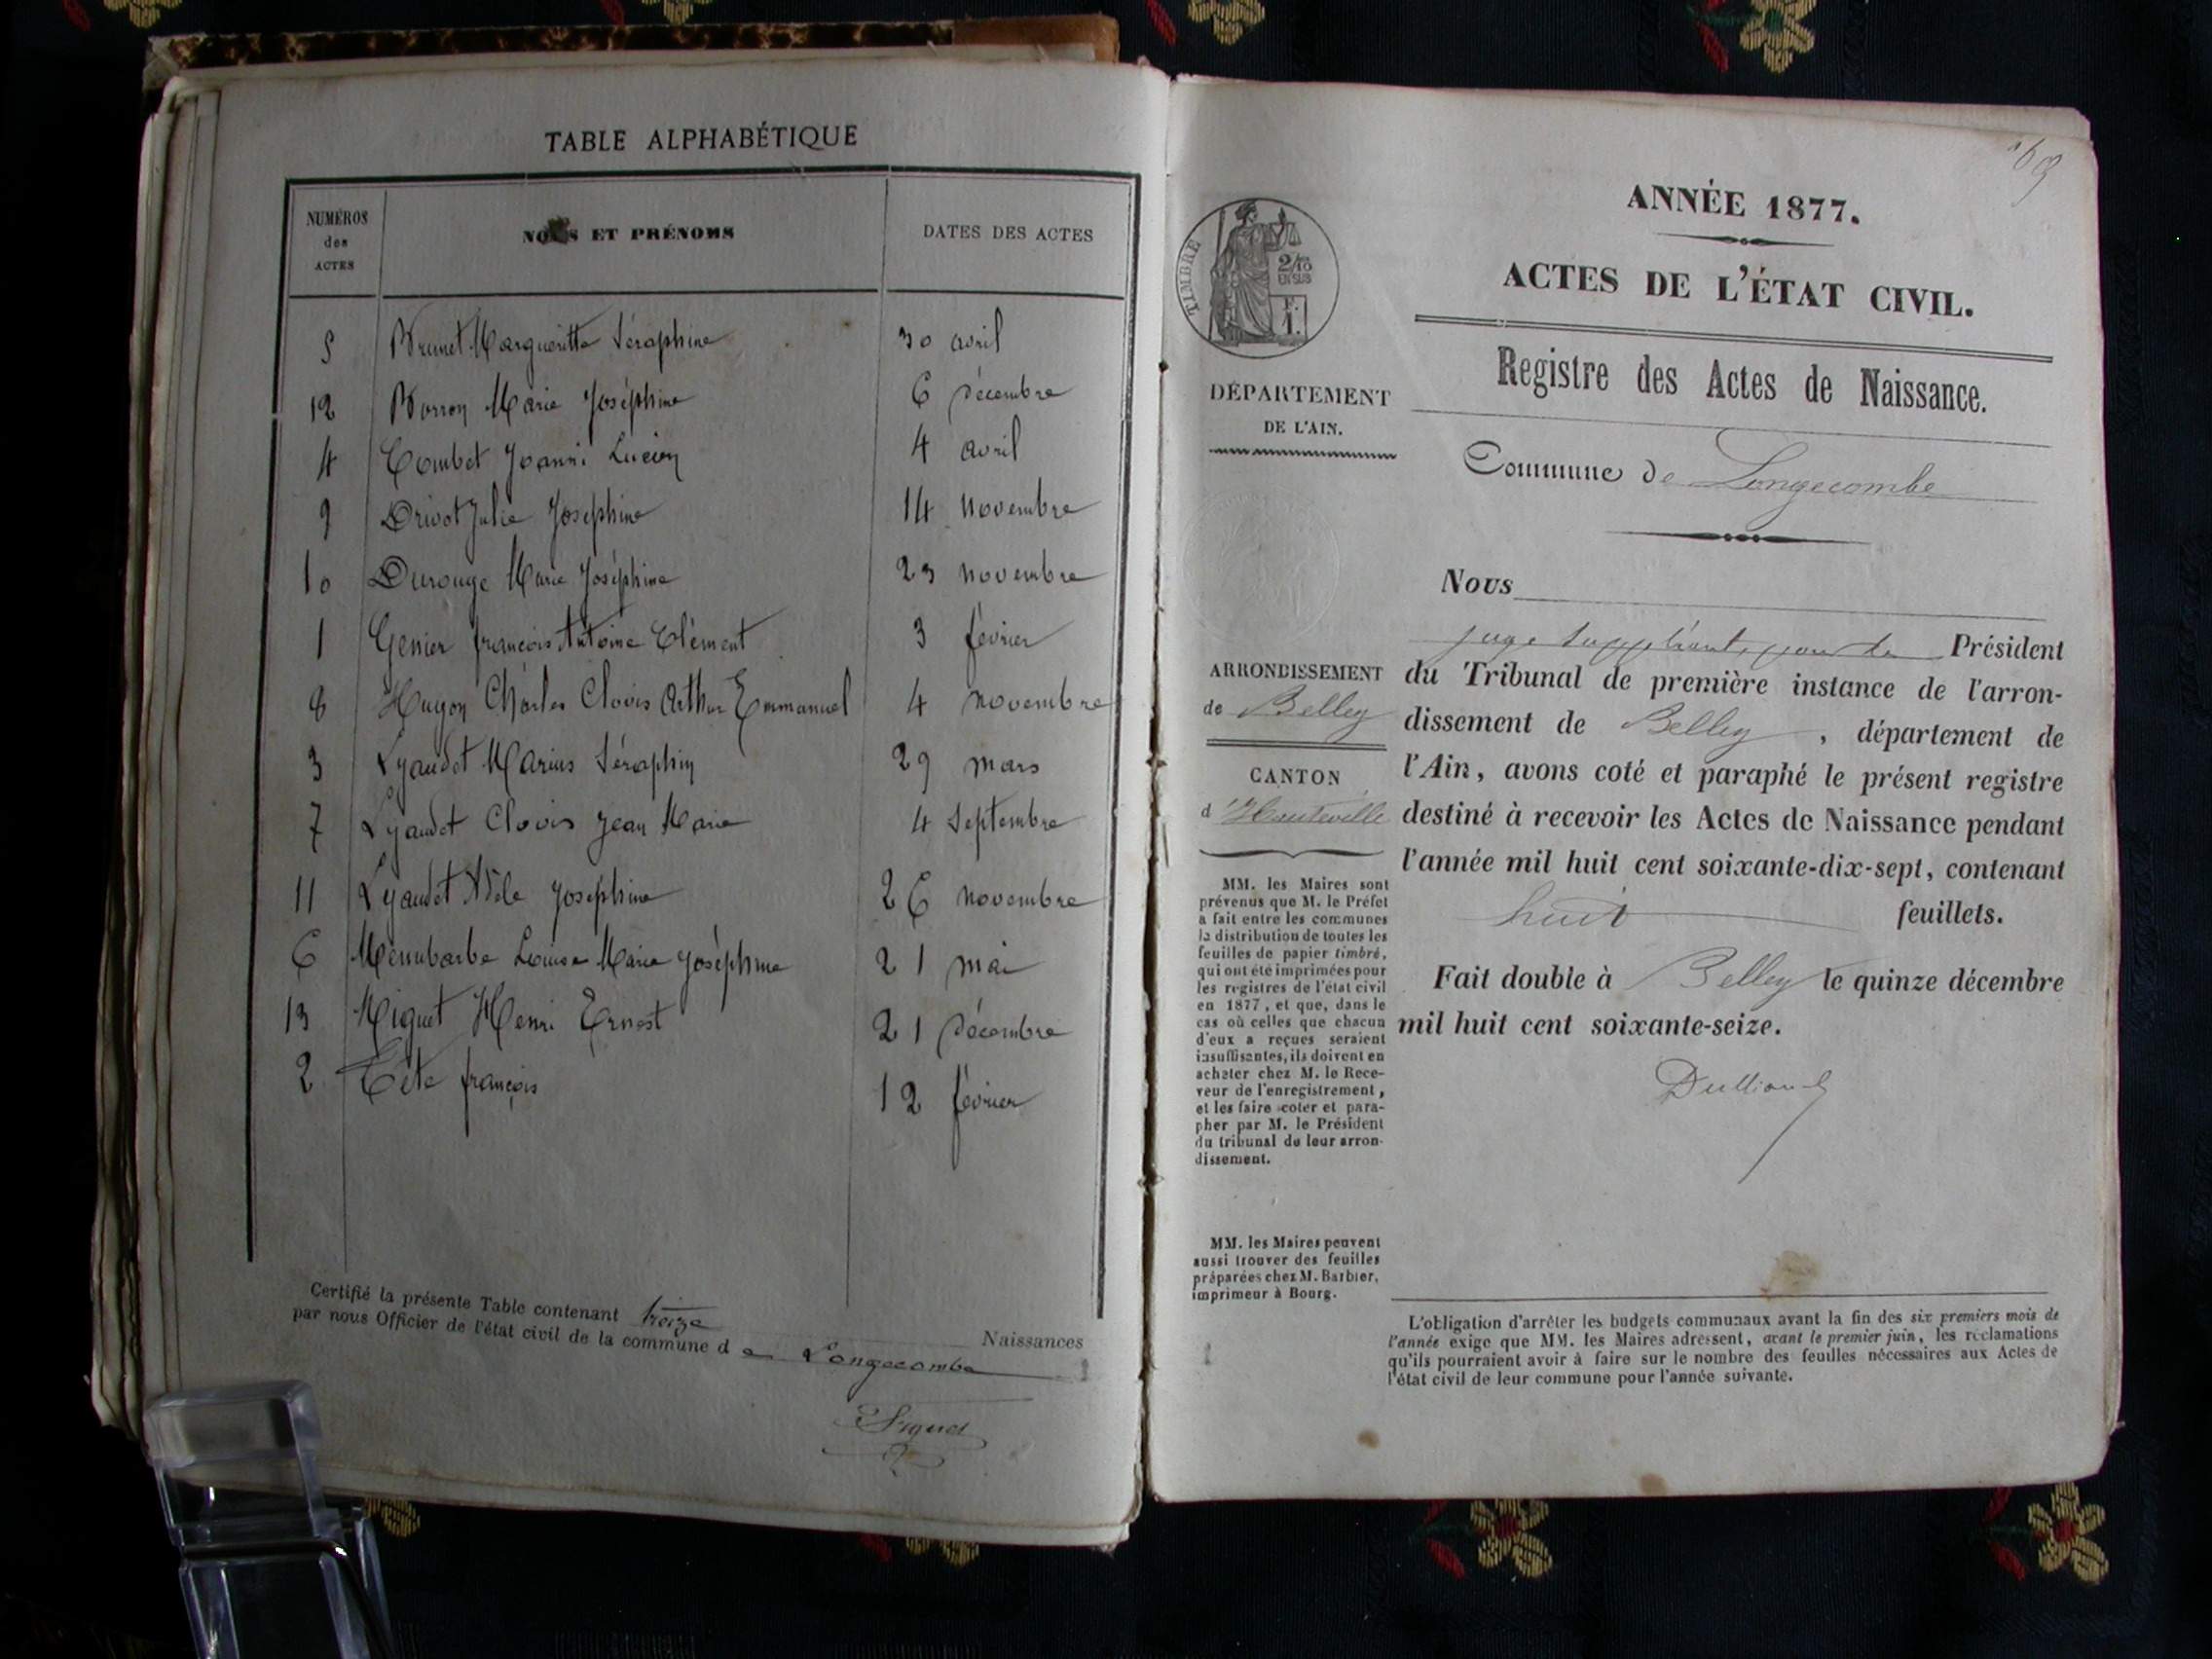 TABLE ALPHABÉTIQUE
NUMÉROS des ACTES
NOMS ET PRÉNOMS
DATES DES ACTES
5 Brunet Margueritte Séraphine 30 avril
12 Borron Marie Joséphine 6 Décembre
4 Combet Joanni Lucien 4 avril
9 Drivot Julie Joséphine 14 Novembre
10 Durouge Marie Joséphine 23 novembre
1 Genier françois Antoine Clément 3 février
8 Hugon Charles Clovis Arthur Emmanuel 4 Novembre
3 Lyaudet Marius Séraphin 29 mars
7 Lyaudet Clovis Jean Marie 4 Septembre
11 Lyaudet Adèle Joséphine 26 novembre
6 Menubarbe Louise Marie Joséphine 21 mai
13 Miguet Henri Ernest 21 Décembre
2 Tête françois 12 février
Certifié la présente Table contenant treize Naissances
par nous Officier de l'état civil de la commune de Longecombe
69
ANNÉE 1877.
ACTES DE L'ÉTAT CIVIL.
Registre des Actes de Naissance.
Commune de Longecombe
TIMBRE
2/10
EN SUS
F.
1.
DÉPARTEMENT
DE L'AIN.
ARRONDISSEMENT
de Belley
CANTON
d'Hauteville
MM. les Maires sont
prévenus que M. le Préfet
a fait entre les communes
la distribution de toutes les
feuilles de papier timbré,
qui ont été imprimées pour
les registres de l'état civil
en 1877, et que, dans le
cas où celles que chacun
d'eux a reçues seraient
insuffisantes, ils doivent en
acheter chez M. le Rece-
veur de l'enregistrement,
et les faire coter et para-
pher par M. le Président
du tribunal de leur arron-
dissement.
MM. les Maires peuvent
aussi trouver des feuilles
préparées chez M. Barbier,
imprimeur à Bourg.
Nous
juge suppléant, pour le Président
du Tribunal de première instance de l'arron-
dissement de Belley, département de
l'Ain, avons coté et paraphé le présent registre
destiné à recevoir les Actes de Naissance pendant
l'année mil huit cent soixante-dix-sept, contenant
huit feuillets.
Fait double à Belley le quinze décembre
mil huit cent soixante-seize.
L'obligation d'arrêter les budgets communaux avant la fin des six premiers mois de
l'année exige que MM. les Maires adressent, avant le premier juin, les réclamations
qu'ils pourraient avoir à faire sur le nombre des feuilles nécessaires aux Actes de
l'état civil de leur commune pour l'année suivante.